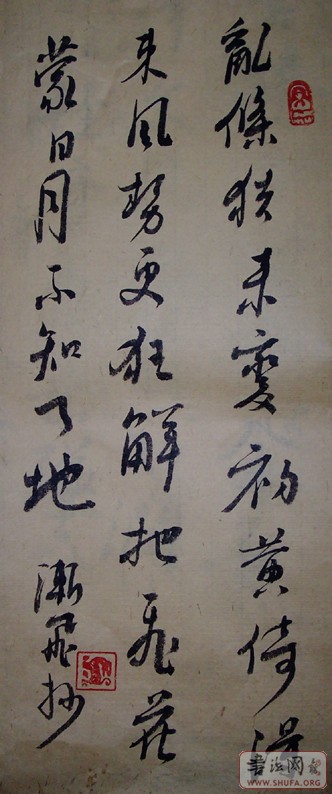 亂條猶未變初黄倚得
東風勢更狂解把飛花
蒙日月不知天地
漸飛抄
WWW.SHUFA.ORG